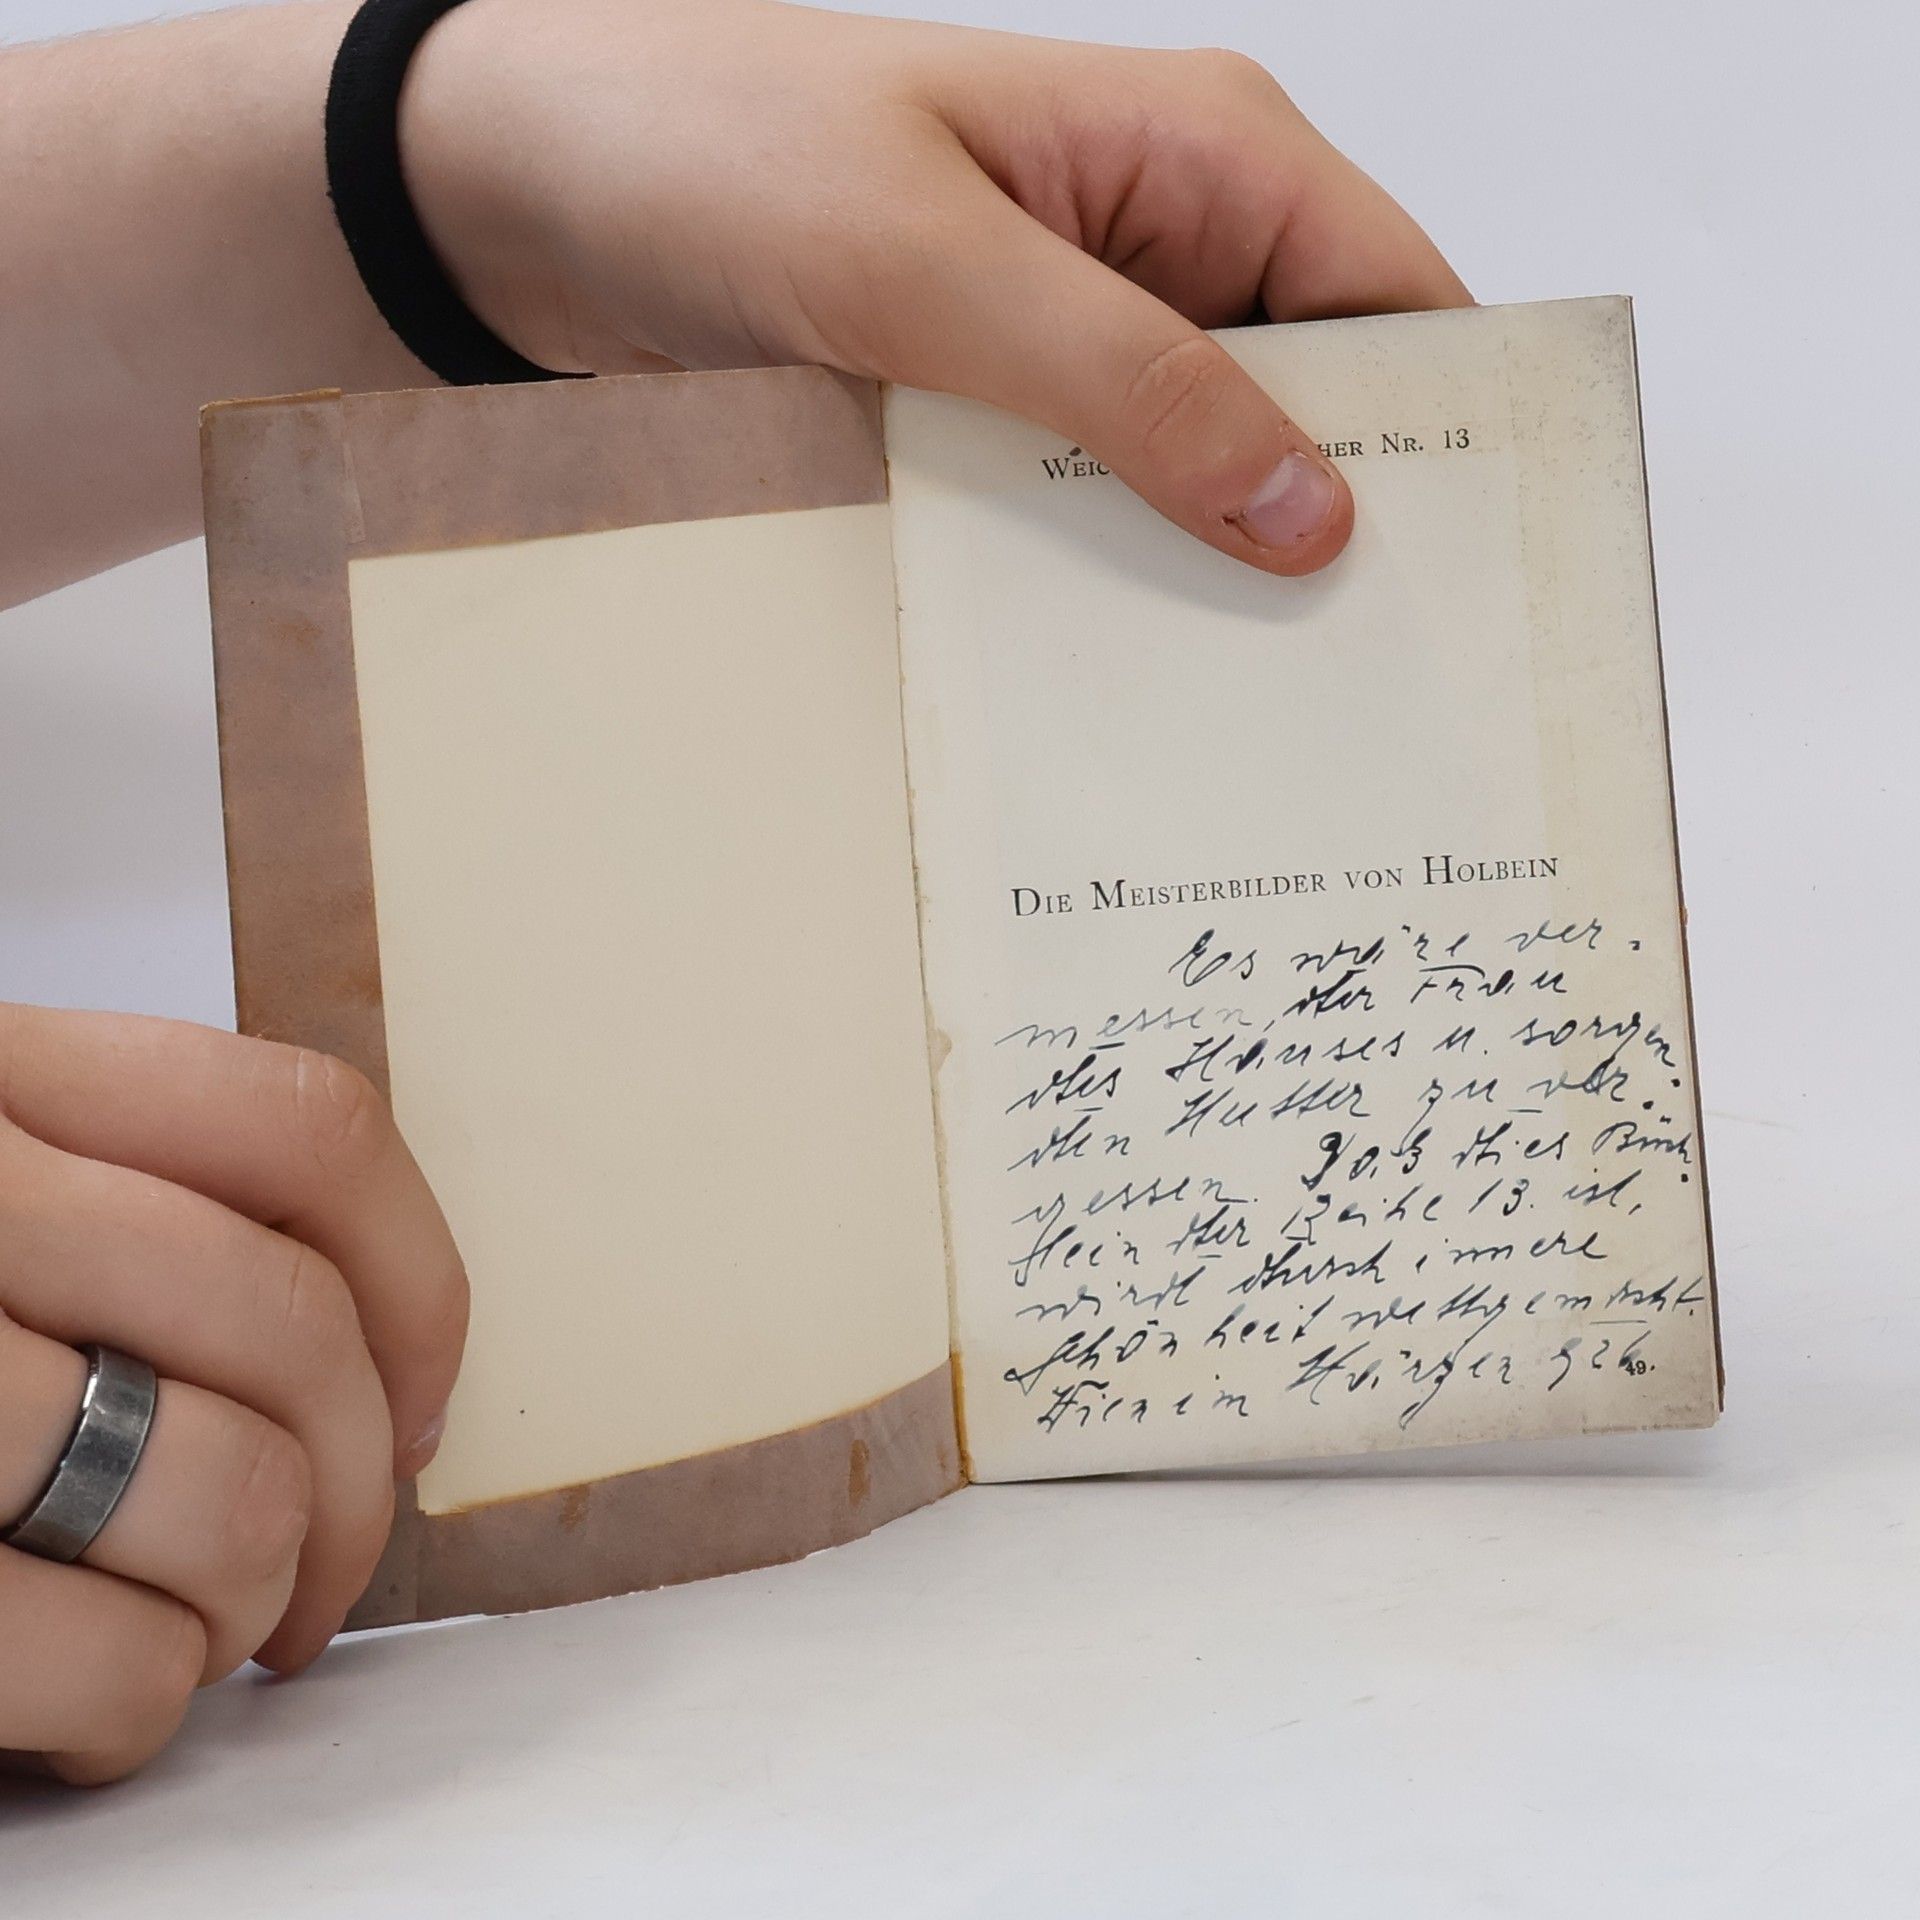 WEIC HER NR. 13
DIE MEISTERBILDER VON HOLBEIN
Es wäre ver-
messen, der Frau
des Hauses u. sorgen-
den Mutter zu ver-
gessen. Daß dies Büch-
lein der Reihe 13. ist,
wird durch innere
Schönheit wettgemacht.
Wien im März 926
49.